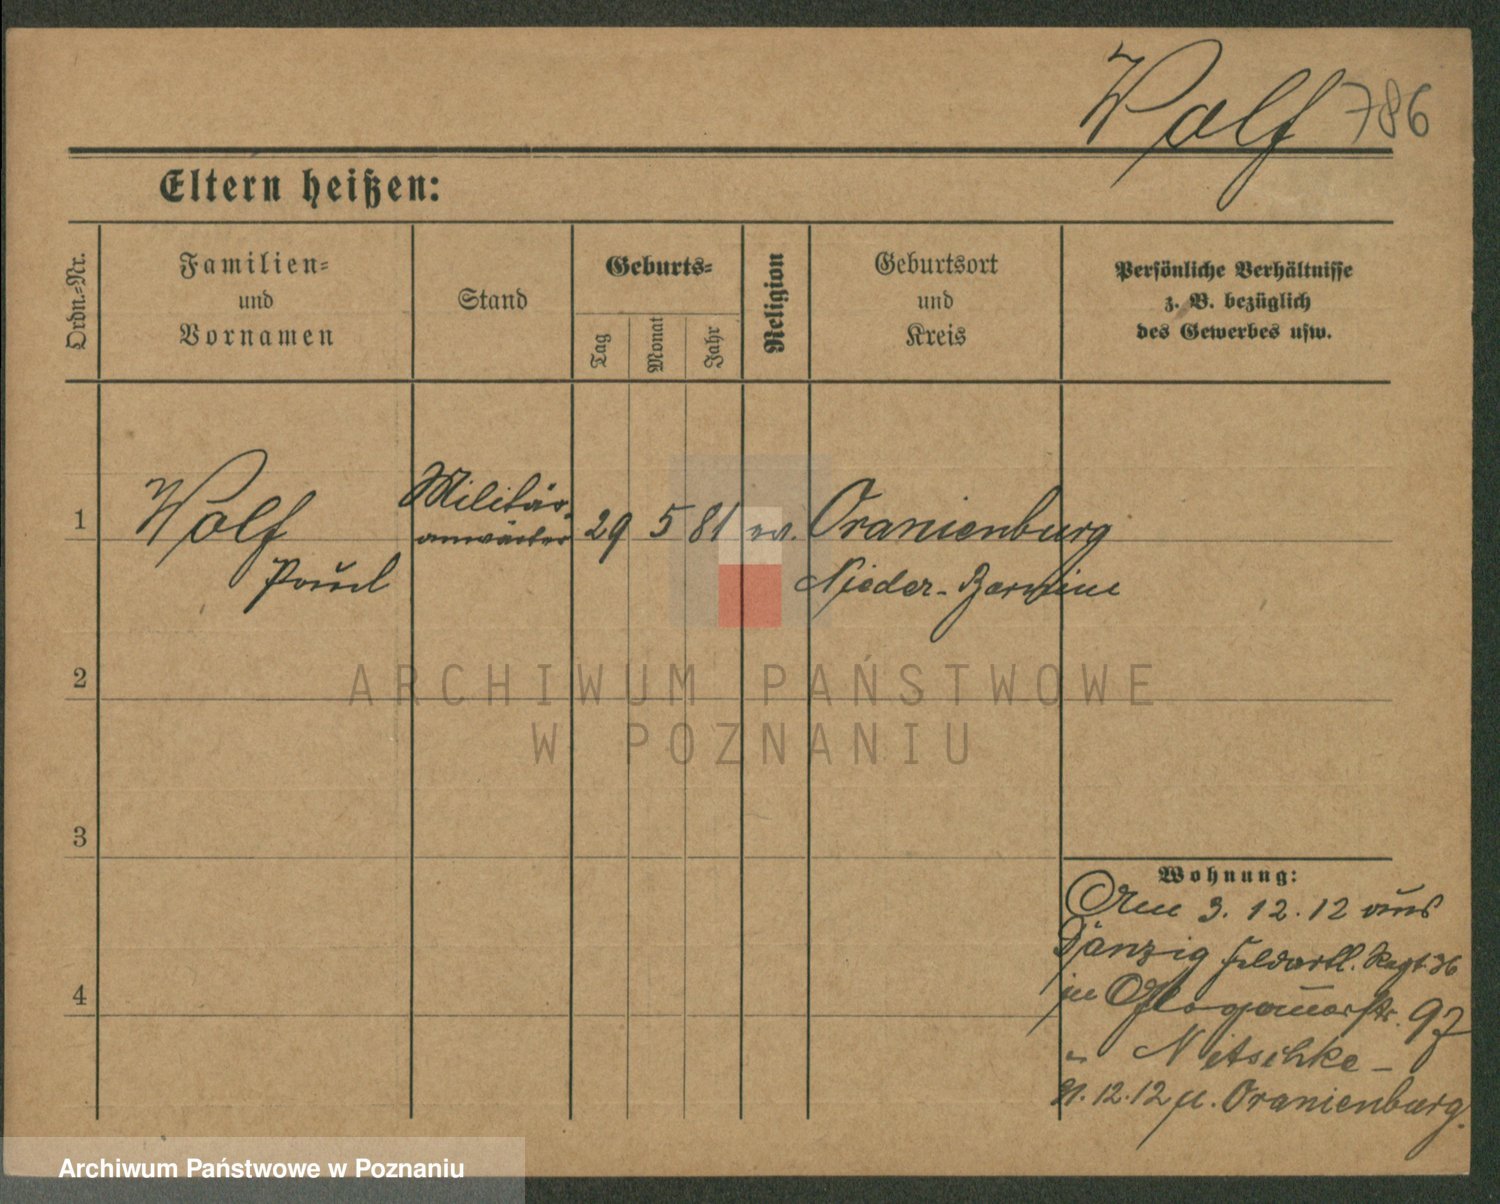 Wolf 786
Eltern heißen:
Ordn.-Nr.
Familien-
und
Vornamen
Stand
Geburts-
Tag
Monat
Jahr
Religion
Geburtsort
und
Kreis
Persönliche Verhältnisse
z. B. bezüglich
des Gewerbes usw.
1 Wolf Militär- 29 5 81 ev. Oranienburg
Paul anwärter Nieder-Barnim
2
ARCHIWUM PAŃSTWOWE
W POZNANIU
3
Wohnung:
Am 3.12.12 aus
Danzig Feldartl. Regt. 36
in Glogauerstr. 97
Nitschke -
12.12 n. Oranienburg.
4
Archiwum Państwowe w Poznaniu